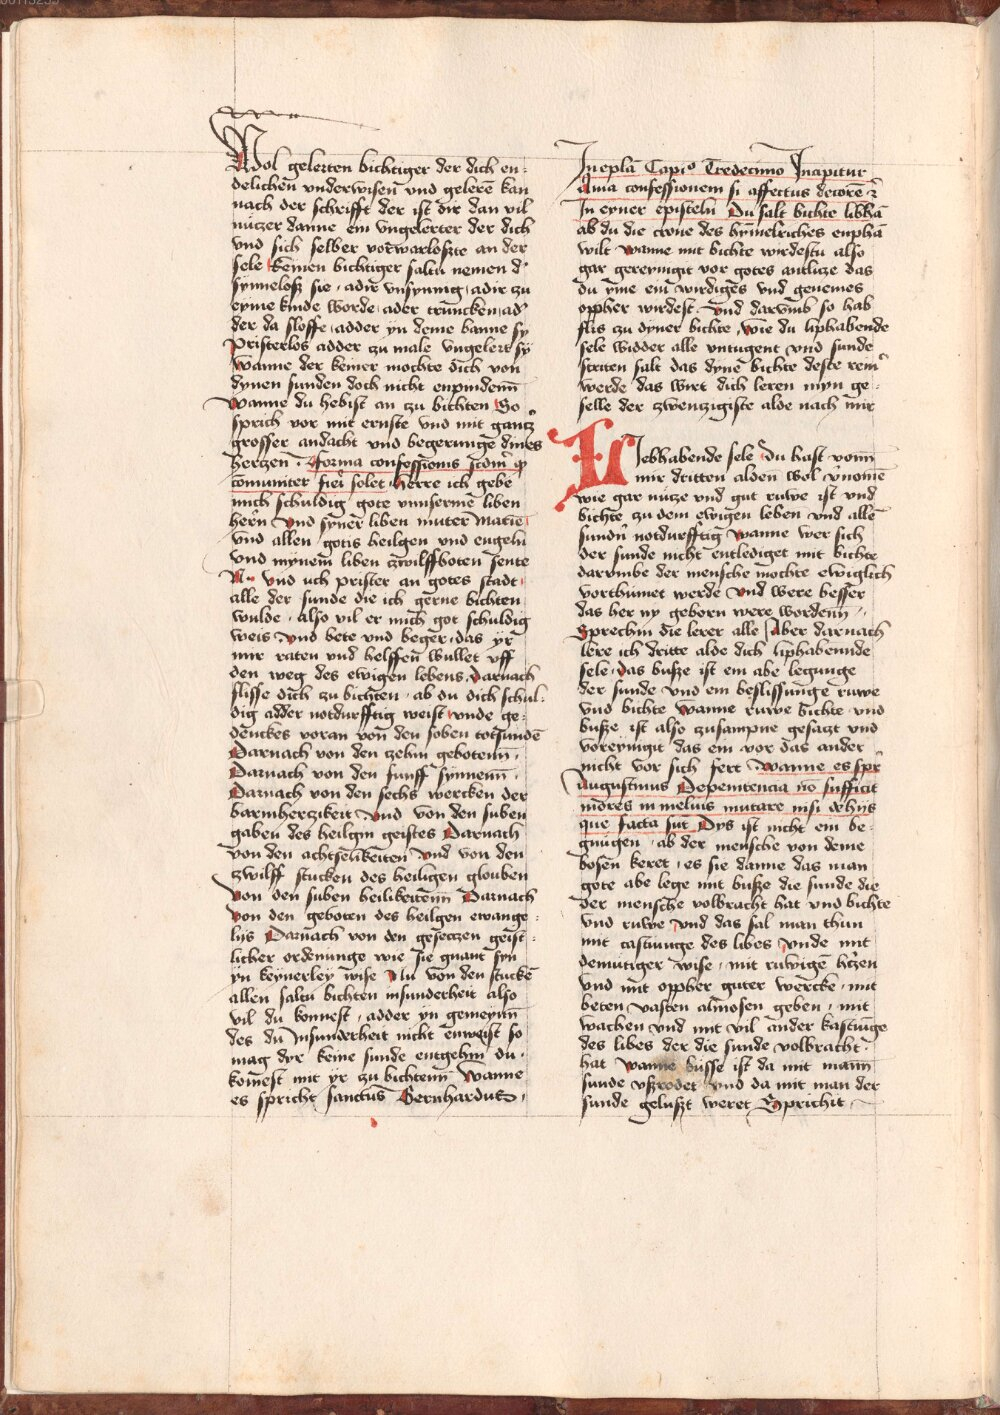 Wol gelerten bichtiger der dich en-
delichen vnderwisen vnd gelere kan
nach der schrifft der ist dir dan vil
nuczer danne ein vngelerter der dich
vnd sich selber vorwarloszte an der
sele keynen bichtiger saltu nemen d'
synnelosz sie adir vnsynnig adir zu
eyme kinde worde ader truncken ad'
der da sloffe adder yn deme banne sy
Pristerlos adder zu male vngelert sy
Wanne der keiner mochte dich von
dynen sunden doch nicht enpindenn
Wanne du hebist an zu bichten So
sprich vor mit ernste vnd mit gantz'
grosser andacht vnd begerunge dines
hertzen forma confessionis scdm' qd
comuniter fieri solet Herre ich gebe
mich schuldig gote vnnserme liben
hern Vnd syner liben muter Marie
vnd allen gotis heilgen vnd engeln
vnd mynem liben zwilffboten sente
N·· vnd uch prister an gotes stadt
alle der sunde die ich gerne bichten
wulde also vil er mich got schuldig
weis Vnd bete vnd beger das yr
mir raten vnd helffen wullet vff
den weg des ewigen lebens Darnach
flisse dich zu bichten ab du dich schul-
dig adder notdurfftig weist vnde ge-
denckes voran von den soben totsunde
Darnach von den zehn gebotenn
Darnach von den funff synnenn
Darnach von den sechs wercken der
barmherzikeit Vnd von den suben
gaben des heilgin geistes Darnach
von den achtselikeiten Vnd von den
zwilff stucken des heiligen glouben
Von den suben heilikeitenn Darnach
Von den geboten des heilgen ewange-
lijs Darnach von den geseczen geist-
licher ordenunge wie sie gnant syn
yn keynerley wise Nu von den stucke
allen saltu bichten insunderheit also
vil du konnest adder yn gemeynn
des du Insunderheit nicht enweist so
mag dyr keine sunde entgehin du
komest mit yr zu bichtenn Wanne
es spricht sanctus Bernhardus
In epla Capio Tredecimo Incipitur
Ama confessionem si affectus decore &
In eyner episteln Du salt bichte libhn
ab du die crone des hymelriches enpha
wilt Wanne mit bichte wirdestu also
gar gereynigit vor gotes antlicze das
du yme ein wirdiges vnd genemes
oppher wirdest Vnd darumb so hab
flis zu dyner bichte Wie du liphabende
sele widder alle vntugent vnd sunde
striten salt das dyne bichte deste rein'
werde das wirt dich leren myn ge-
selle der zwenzigiste alde nach mir
Liebhabende sele Du hast vonn
mir dritten alden wol v'nome
wie gar nucze vnd gut ruwe ist vnd
bichte zu dem ewigen leben Vnd alle
sundn' notdurfftig Wanne wer sich
der sunde nicht entlediget mit bichte
darumbe der mensche mochte ewiglich
vorthumet werde Vnd were besser
das her ny geborn were wordenn
Sprechin die lerer alle Aber darnach
lere ich dritte alde dich liphabennde
sele das busze ist ein abe legunge
der sunde vnd ein beflissunge ruwe
vnd bichte Wanne ruwe bichte vnd
busze ist also zusampne gesaczt vnd
voreynigit das ein vor das ander
nicht vor sich fert Wanne es spr'
Augustinus De penitencia no sufficit
mores in melius mutare nisi de hijs
que facta sut Dys ist nicht ein be-
gnugen ab der mensche von deme
bosen keret es sie danne das man
gote abe lege mit busze die sunde die
der mensche volbracht hat vnd bichte
vnd ruwe Vnd das sal man thun
mit castiunge des libes Vnde mit
demutiger wise mit ruwige h'czen
vnd mit oppher guter wercke mit
beten vasten almosen geben mit
wachen vnd mit vil ander kastiuge
des libes der die sunde volbracht
hat Wanne busse ist da mit mann
sunde vszrodet Vnd da mit man der
sunde geluszt weret Sprichit